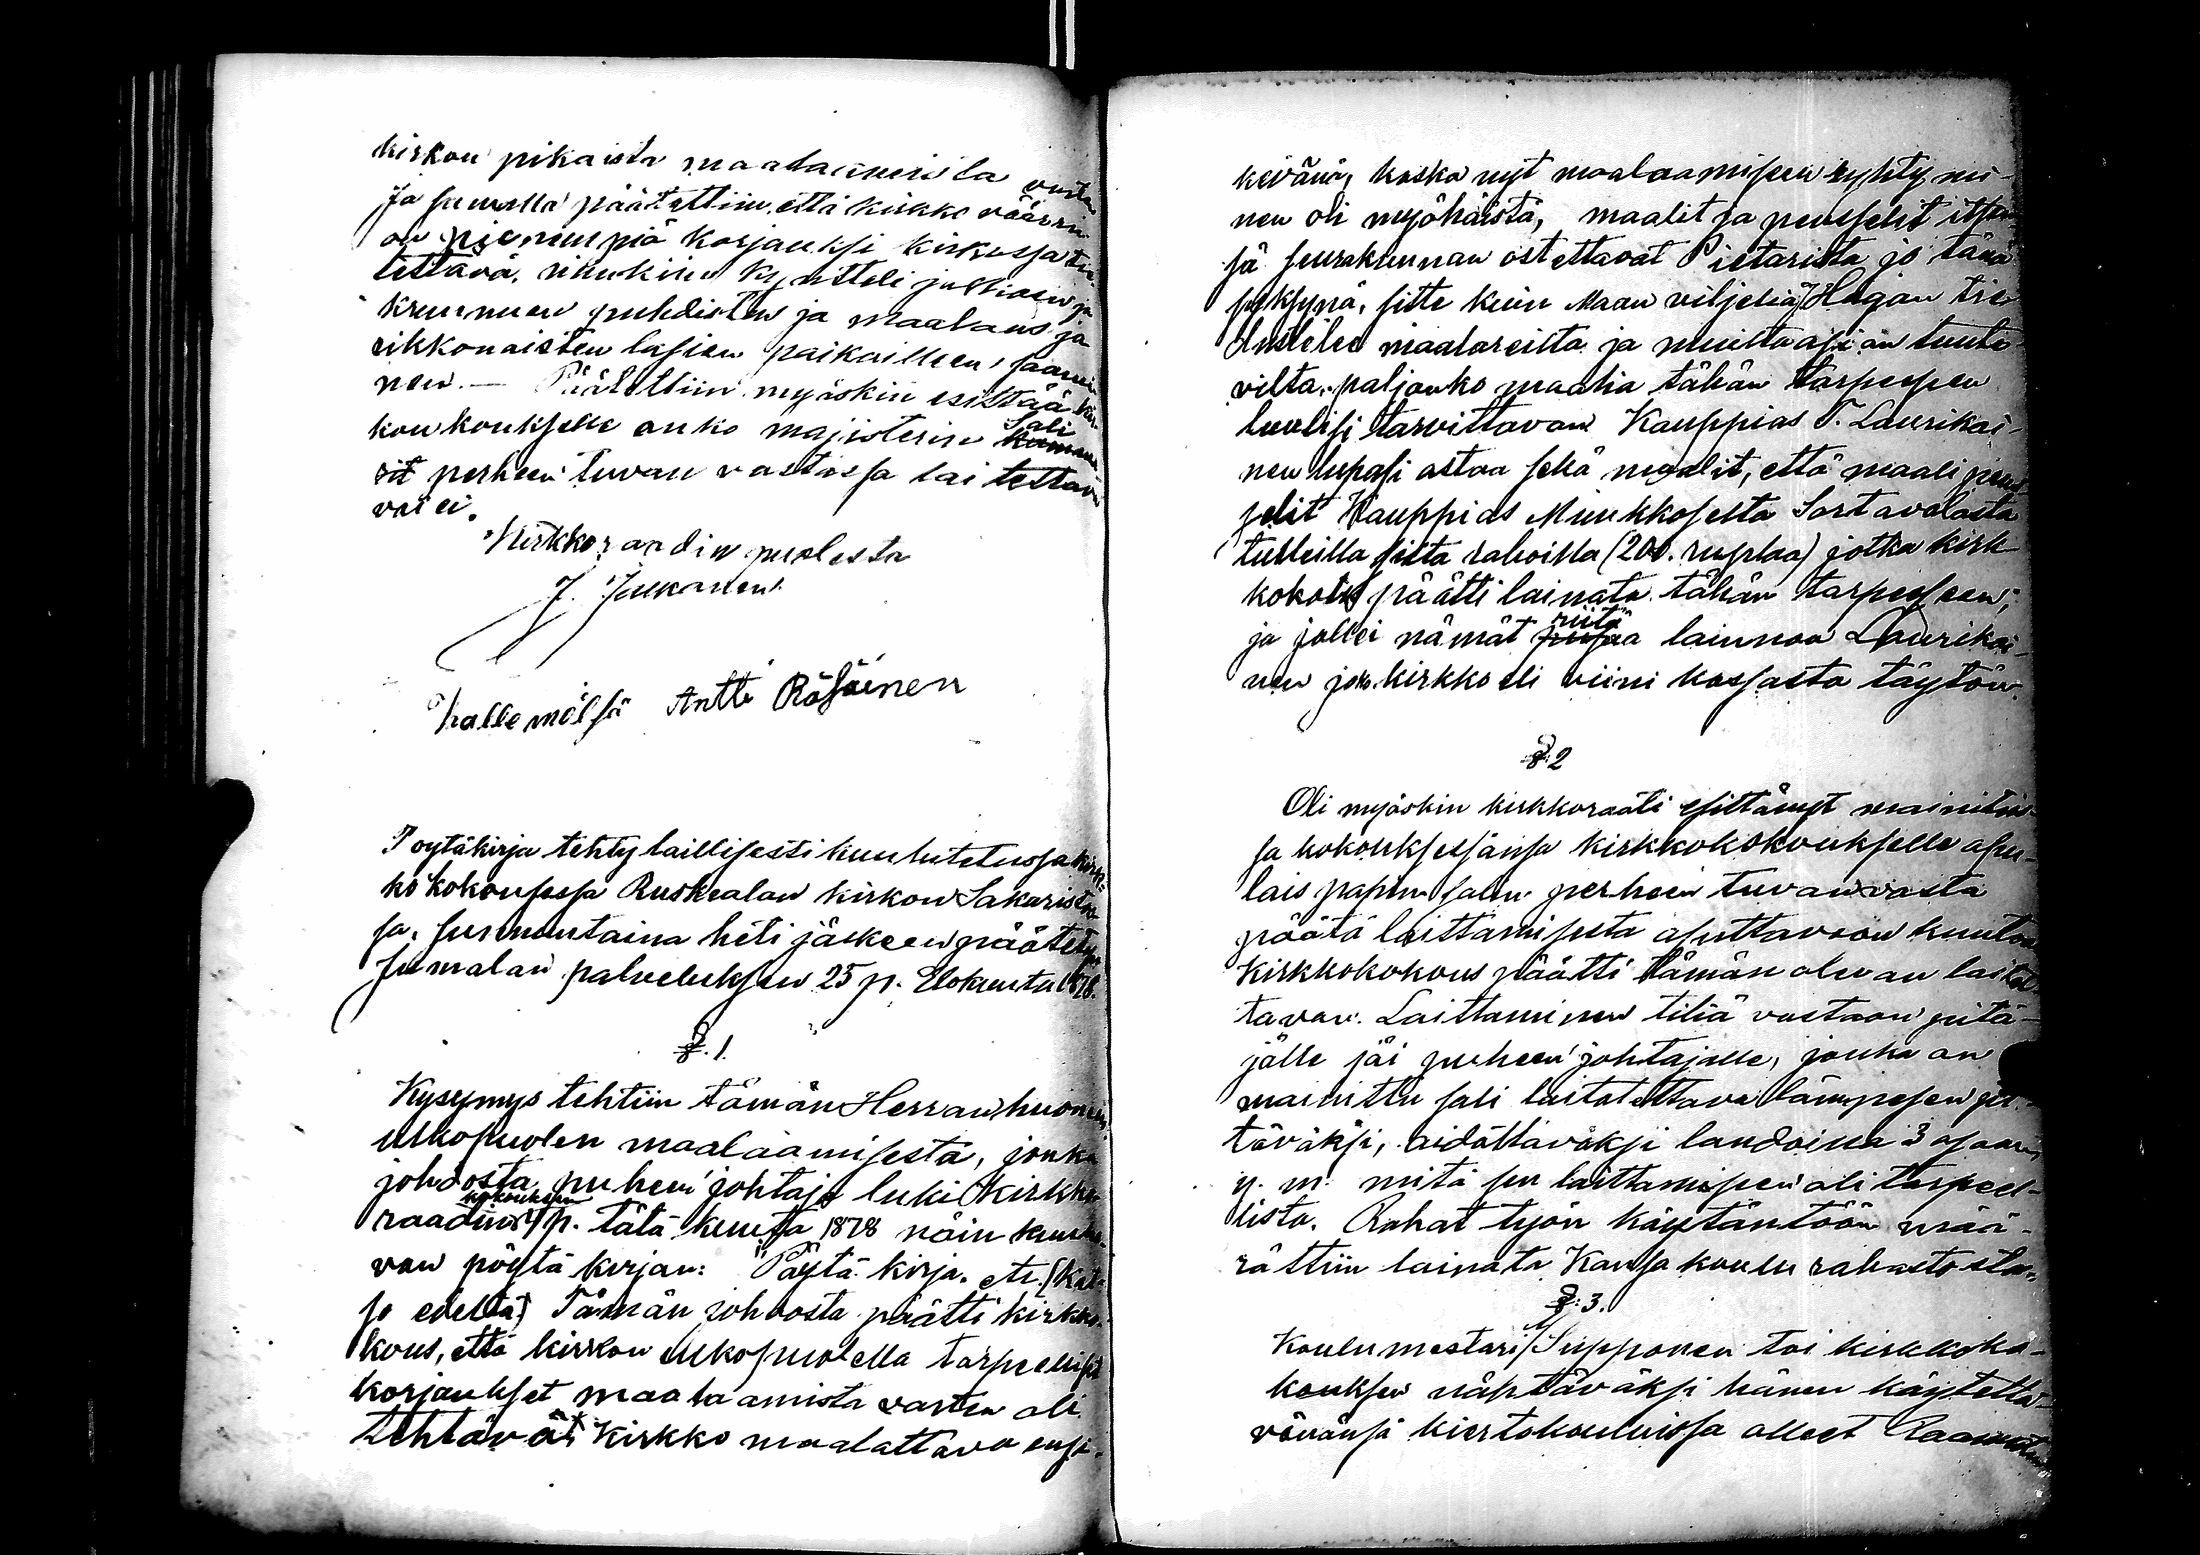 kirkon pikaista maalaamista varten
Ja samalla päätettiin, että kirkko väärin
on pienempiä korjauksi kirkossa
tettävä, niinkuin kyntteli ja
kruunuun puhdistus ja maalaus ja
rikkonaisten lasien paikailleen saami
nen. — Päätettiin myöskin esittää kir
kon kouksele onko majisterin Sali
rit perheen tuvan vastassa laitettava
vai ei.
Kirkkoraadin puolesta
J. Jukanen.
Kalle mölsä Antti Räsäinen
Poytäkirja tehty laillisesti kuulutetussa kirk-
ko kokouksessa Ruskealan kirkon Sakaristos
sa, sunnuntaina heti jälkeen päätetyn
Jumalan palveluksen 25 p. Elokuuta 1878.
§. 1.
Kysymys tehtiin tämän Herran huoneen
ulkopuolen maalaamisesta, jonka
johdosta puheen johtaja luki Kirkko
kokouksen
raadin 4 p. tätä kuuta 1878 näin kuulu-
van pöytä kirjan: "Päytä kirja. etc. (Kat-
so edeltä) Tämän johdosta päätti kirkko-
kous, että kirkon ulkopuolella tarpeelliset
korjaukset maalaamista varten oli
tehtävät Kirkko maalattava ensi-
kevänä, koska nyt maalaamiseen ryhtymi-
nen oli myöhäistä, maalit ja pensselit itsen
sä seurakunnan ostettavat Pietarista jo tänä
syksynä, sitte kuin Maan viljeliä Hagan tie
dustelee maalareilta ja muilta asian tunte
vilta, paljonko maalia tähän tarpeesen
luulisi tarvittavan. Kauppias T. Laurikai-
nen lupasi astaa sekä maalit, että maali pens
selit Kauppias Muukkoselta Sortavalasta
tulleilla niitä rahoilla (200. ruplaa) jotka kirk
kokous päätti lainata tähän tarpeeseen;
riitä
ja jollei nämät lainnaa Laurikai-
nen jos kirkko eli viini kassasta täytön.
§. 2
Oli myöskin kirkkoraati esittänyt mainitus-
sa kokouksessänsä kirkkokokoukselle apu-
lais papin salin perheen tuvan vasta
päätä laittamisesta asuttavaan kuntoon
Kirkkokokous päätti tämän olevan laitet-
tavan. Laittaminen tiliä vastaan pitä-
jälle jäi puheen johtajalle, jonka on
mainittu sali laitatettava lämpesen pi-
täväksi, aidättäväksi laudoilla 3 osaan,
y. m. mitä sen laittamiseen oli tarpeel-
lista. Rahat työn käytäntöön mää-
rättiin lainata Kansa koulu rahastosta.
§. 3.
Koulumestari Supponen toi kirkkoko-
kouksen nähtäväksi hänen käytettä-
vänänsä kiertokouluissa olleet